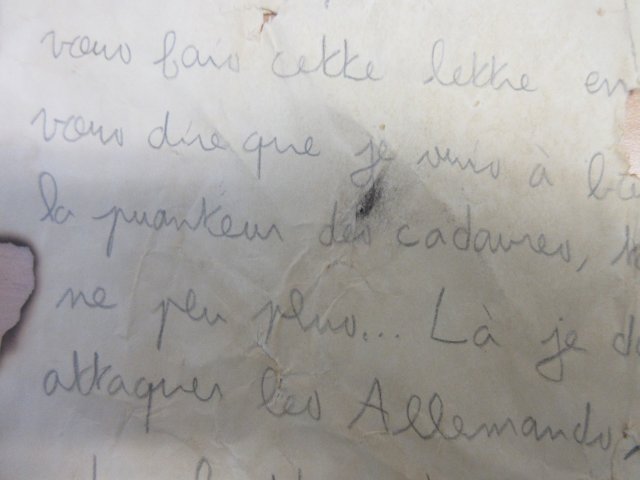 vous fais cette lettre en
vous dire que je suis à
la puanteur des cadavres,
ne peu plus... Là je
attaquer les Allemands,